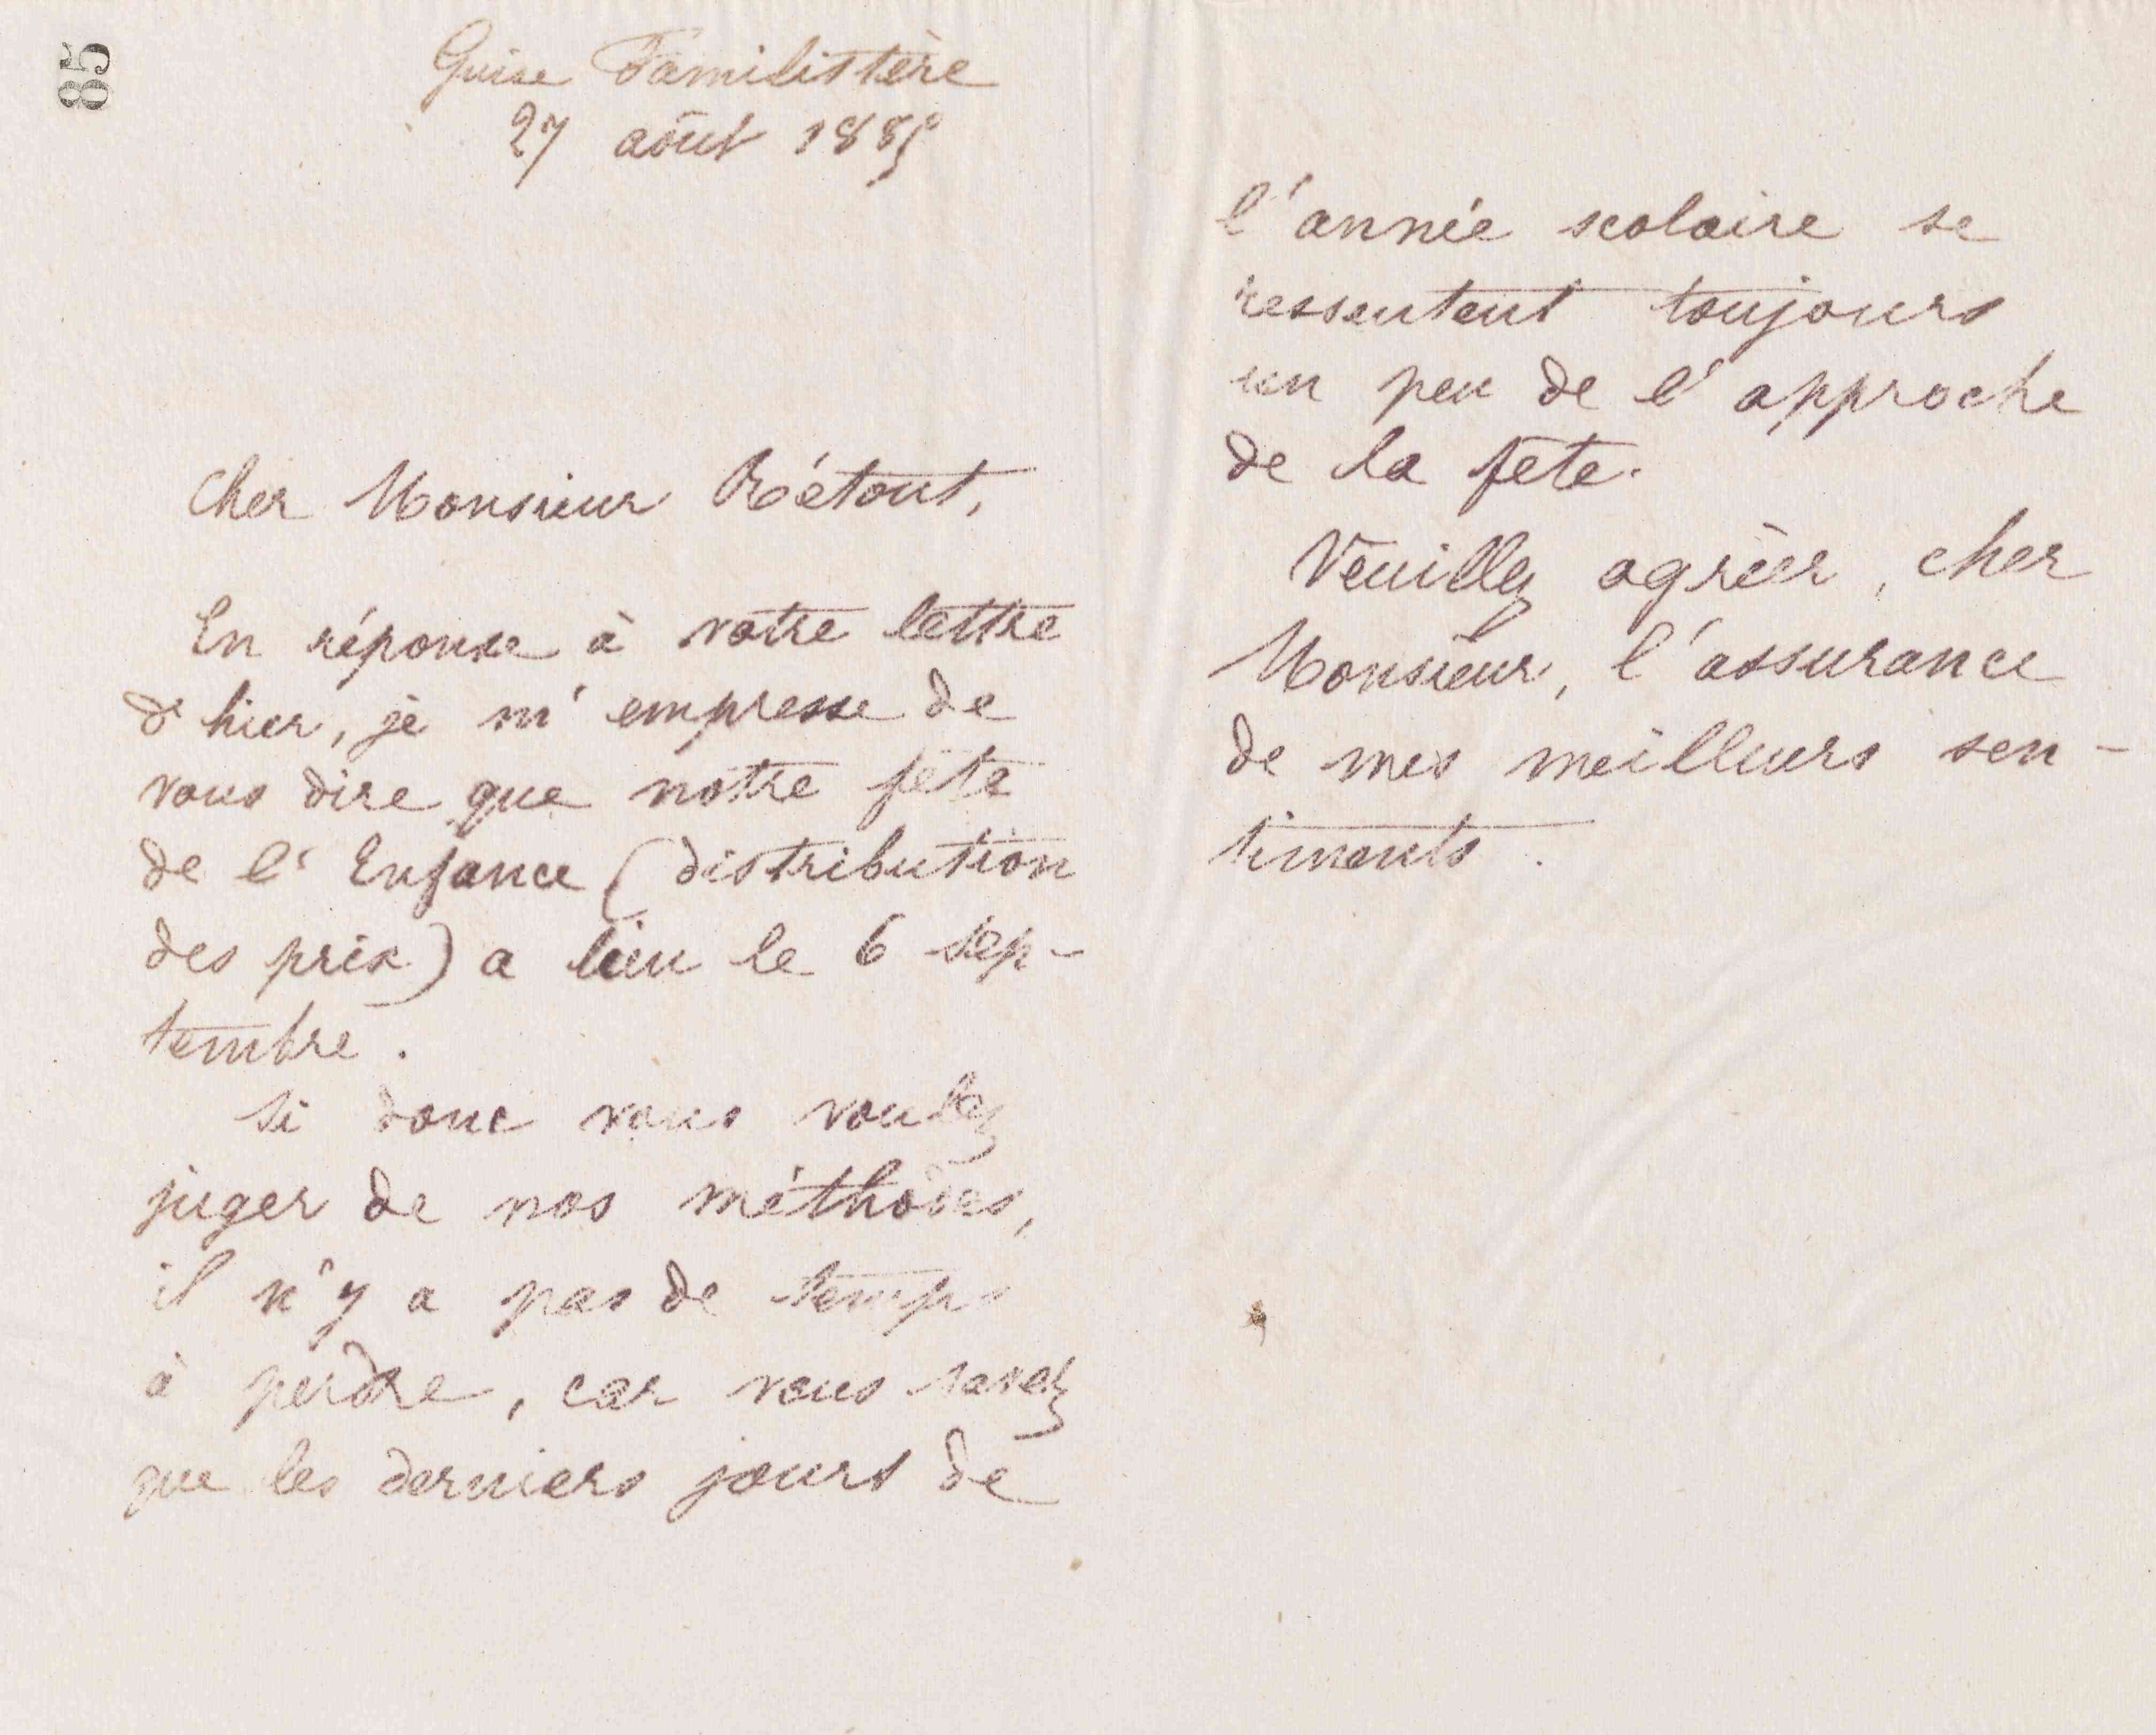 85
Guise Familistère
27 août 1885
Cher Monsieur Rétout,
En réponse à votre lettre
d'hier, je m'empresse de
vous dire que notre fête
de l'Enfance (distribution
des prix) a lieu le 6 sep-
tembre.
Si donc vous voulez
juger de nos méthodes,
il n'y a pas de temps
à perdre, car vous savez
que les derniers jours de
l'année scolaire se
ressentent toujours
un peu de l'approche
de la fête.
Veuillez agréer, cher
Monsieur, l'assurance
de mes meilleurs sen-
timents.